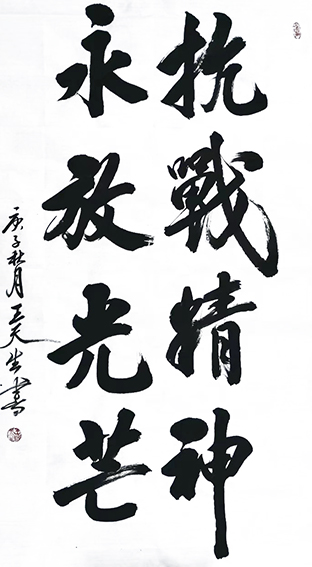 抗戰精神
永放光芒
庚子秋月王天生書